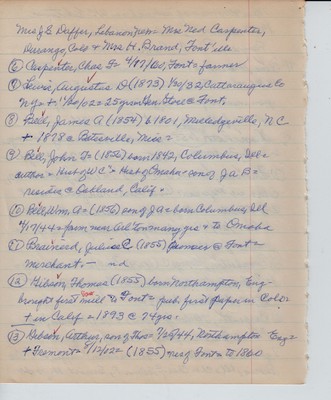 Mrs J E Duffer, Lebanon, Mrs Ned Carpenter,
Durango, Colo + Mrs H. Brand, Font'elle
(6) Carpenter, Chas F= 4/82/60, Font = farmer
(7) Augustus D (1873) 1/20/32, Cattaraugus Co
N.Y= + 1/20/02= 25 yrs Gen. Store @ Font.
(8) James A (1854) b 1801, Milledgeville, N. C
+ 1878 @
(9) Bell, John T= (1856) born 1842, Columbus,
author = Hist of W C = Hist of Omaha = son of J A B=
resides @ Oakland, Calif=
(10) Bell, Wm. A= (1856) son of J A = born Columbus,
4/17/44 = farm near Arl'ton many yrs = to Omaha
(11) Brainerd, Julius C. (1855) pioneer @ Font=
merchant. — nd
(12) Gibson, Thomas (1855) born Northampton, Eng-
brought first saw mill to Font= pub. first paper in Colo=
+ in Calif = 1893 @ 74 yrs.
(13) Gibson, Arthur, son of Thos= 7/25/44, Northampton Eng=
+ Fremont= (1855) res of Font= to 1860